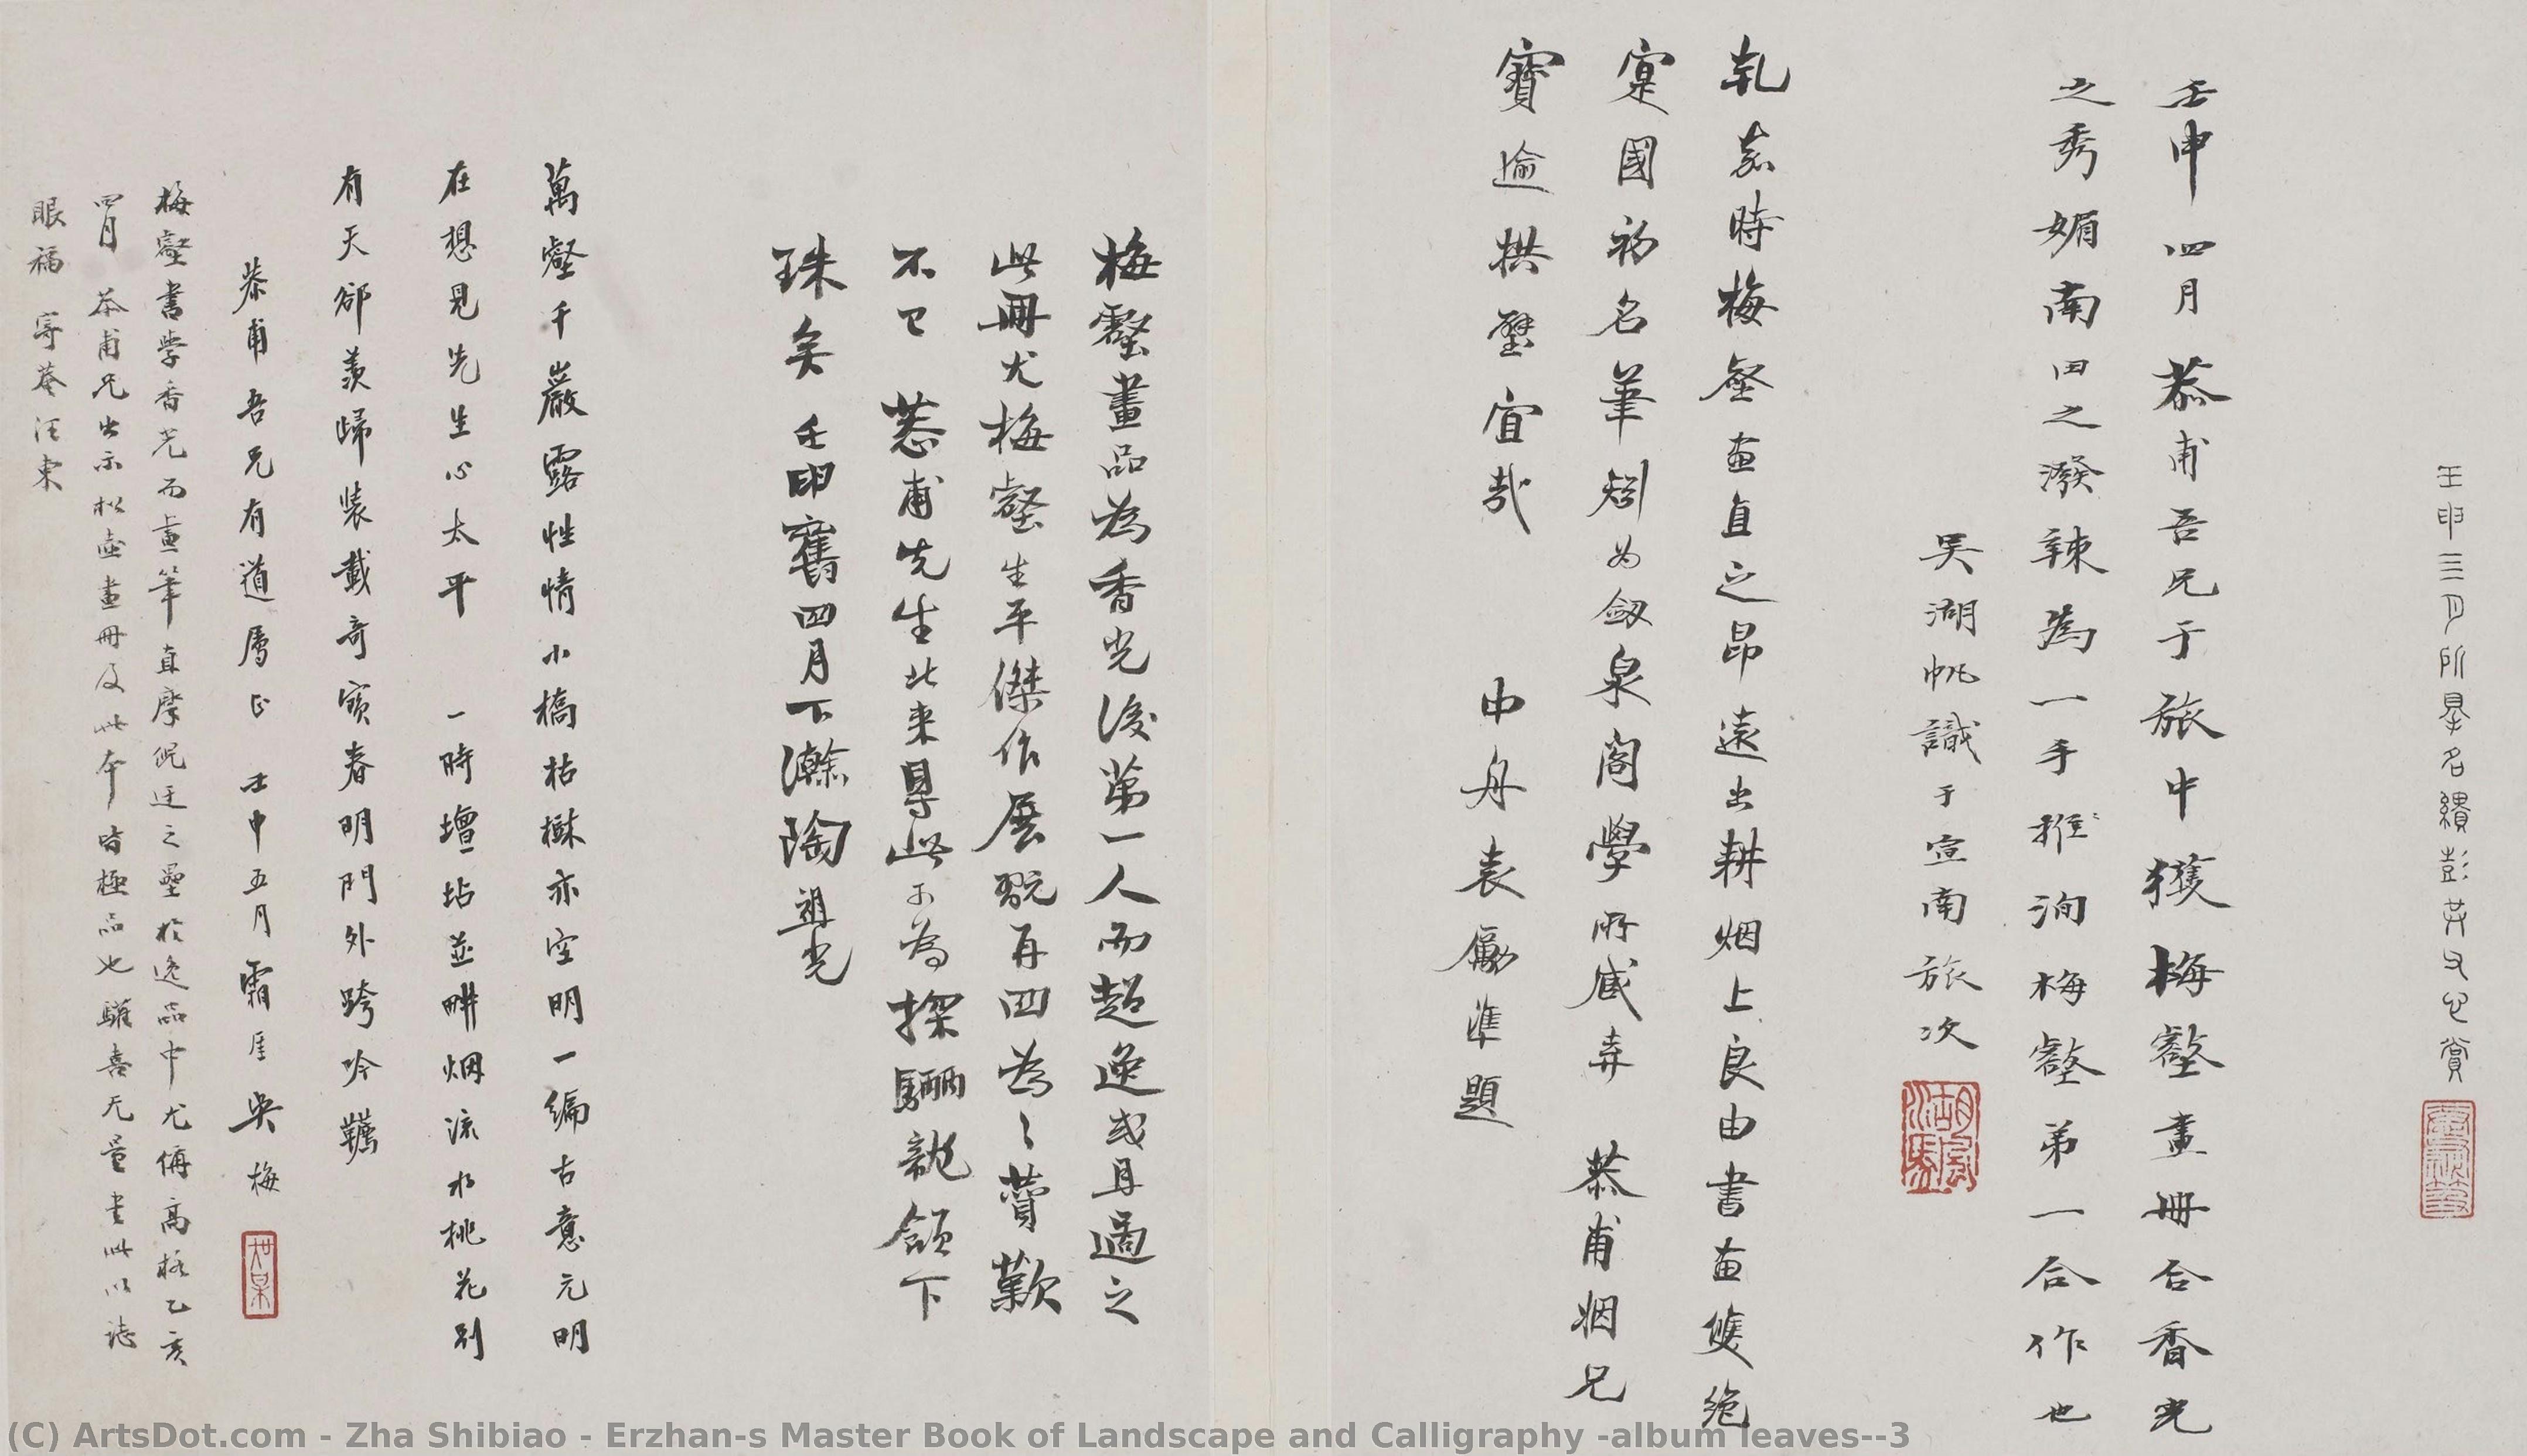 壬申三月所得名繢彭恭甫心賞
壬申四月恭甫吾兄于旅中獲梅壑畫冊合香光
之秀媚南田之潑辣為一手推洵梅壑弟一合作也
吳湖帆識于宣南旅次
乹嘉時梅壑畫直之昂遠出耕烟上良由書畫雙絶
寔國初名筆矧為劔泉閣學所臧弆 恭甫烟兄
寶逾拱璧宜哉 中舟袁勵準題
梅壑畫品為香光後第一人而超逸或且過之
此冊尤梅壑生平傑作展翫再四為之贊歎
不已 恭甫先生北来得此可為探驪龍頷下
珠矣 壬申舊四月下澣陶祖光
萬壑千巖露性情小橋枯樹亦空明一編古意元明
在想見先生心太平 一時壇坫並畊烟流水桃花别
有天郤羨歸装載奇寳春明門外跨吟韉
恭甫吾兄有道属正 壬申五月霜厓吳梅
梅壑書學香光而畫筆直摩倪迂之壘於逸品中尤偁高格乙亥
四月 恭甫兄出示松壺畫冊及此本皆極品也驩喜无量書此以誌
眼福 寄菴汪東
(C) ArtsDot.com - Zha Shibiao - Erzhan-s Master Book of Landscape and Calligraphy -album leaves--3